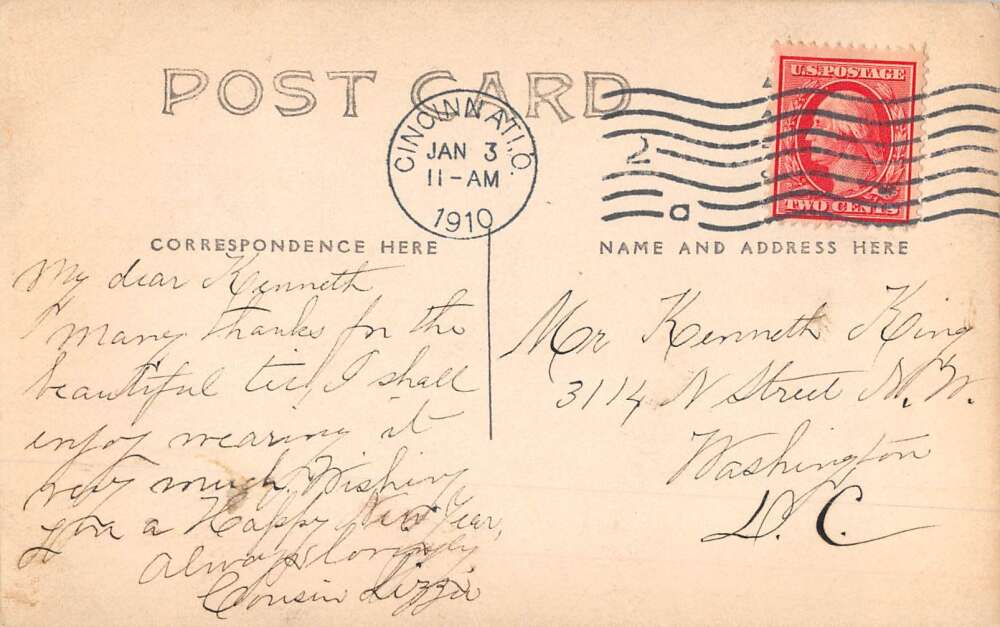 POST CARD
CINCINNATI, O.
JAN 3
11-AM
1910
2
a
U.S. POSTAGE
TWO CENTS
CORRESPONDENCE HERE
NAME AND ADDRESS HERE
My dear Kenneth
Many thanks for the
beautiful tie, I shall
enjoy wearing it
very much. Wishing
you a Happy New Year,
Always lovingly
Cousin Lizzie
Mr Kenneth King
3114 N Street N.W.
Washington
D.C.